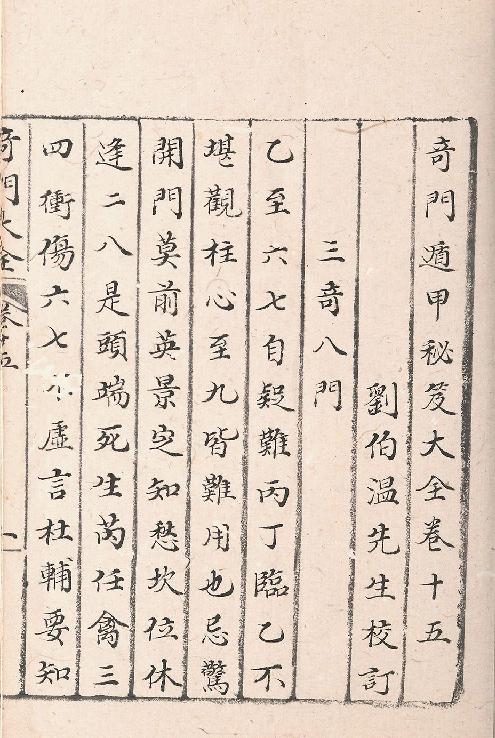 奇門遁甲秘笈大全卷十五
劉伯温先生校訂
三奇八門
乙至六七自疑難丙丁臨乙不
堪觀柱心至九皆難用也忌驚
開門莫前英景定知愁坎位休
逢二八是頭端死生芮任禽三
四衝傷六七不虛言杜輔要知
奇門大全 卷十五 一